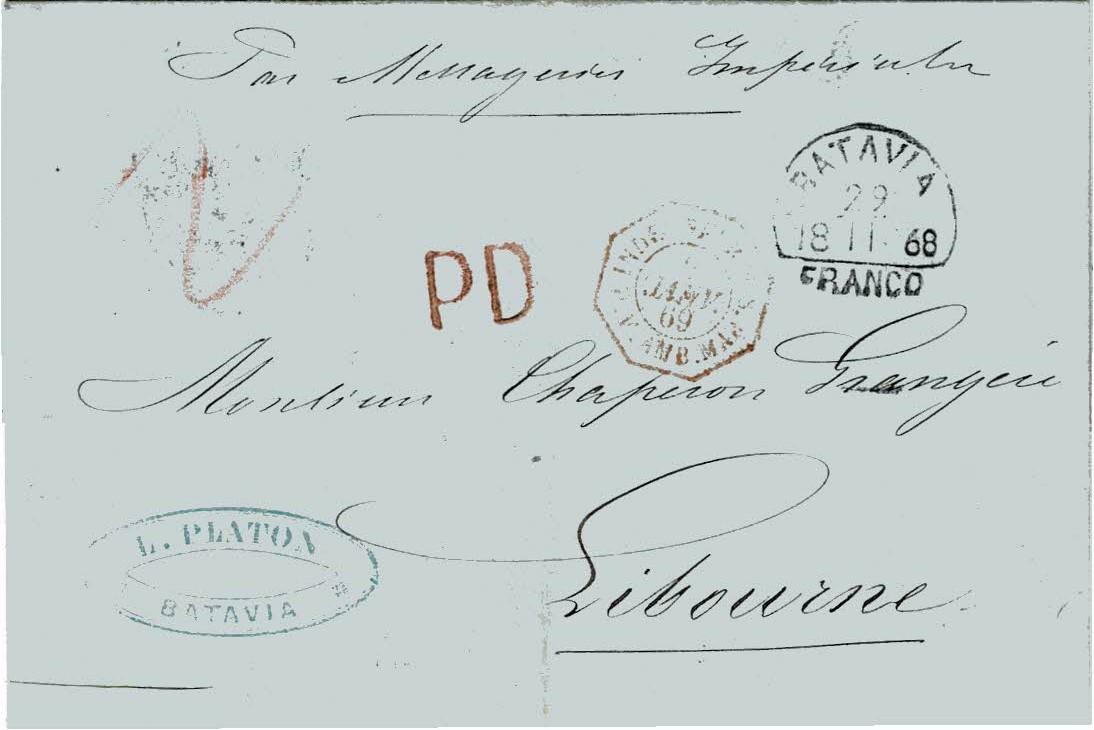 Par Messageries Impériales
BATAVIA
29
18 11 68
FRANCO
PD
INDE
JANV.
69
AMB. MAR
Monsieur Chaperon Grangère
Libourne
L. PLATON
BATAVIA